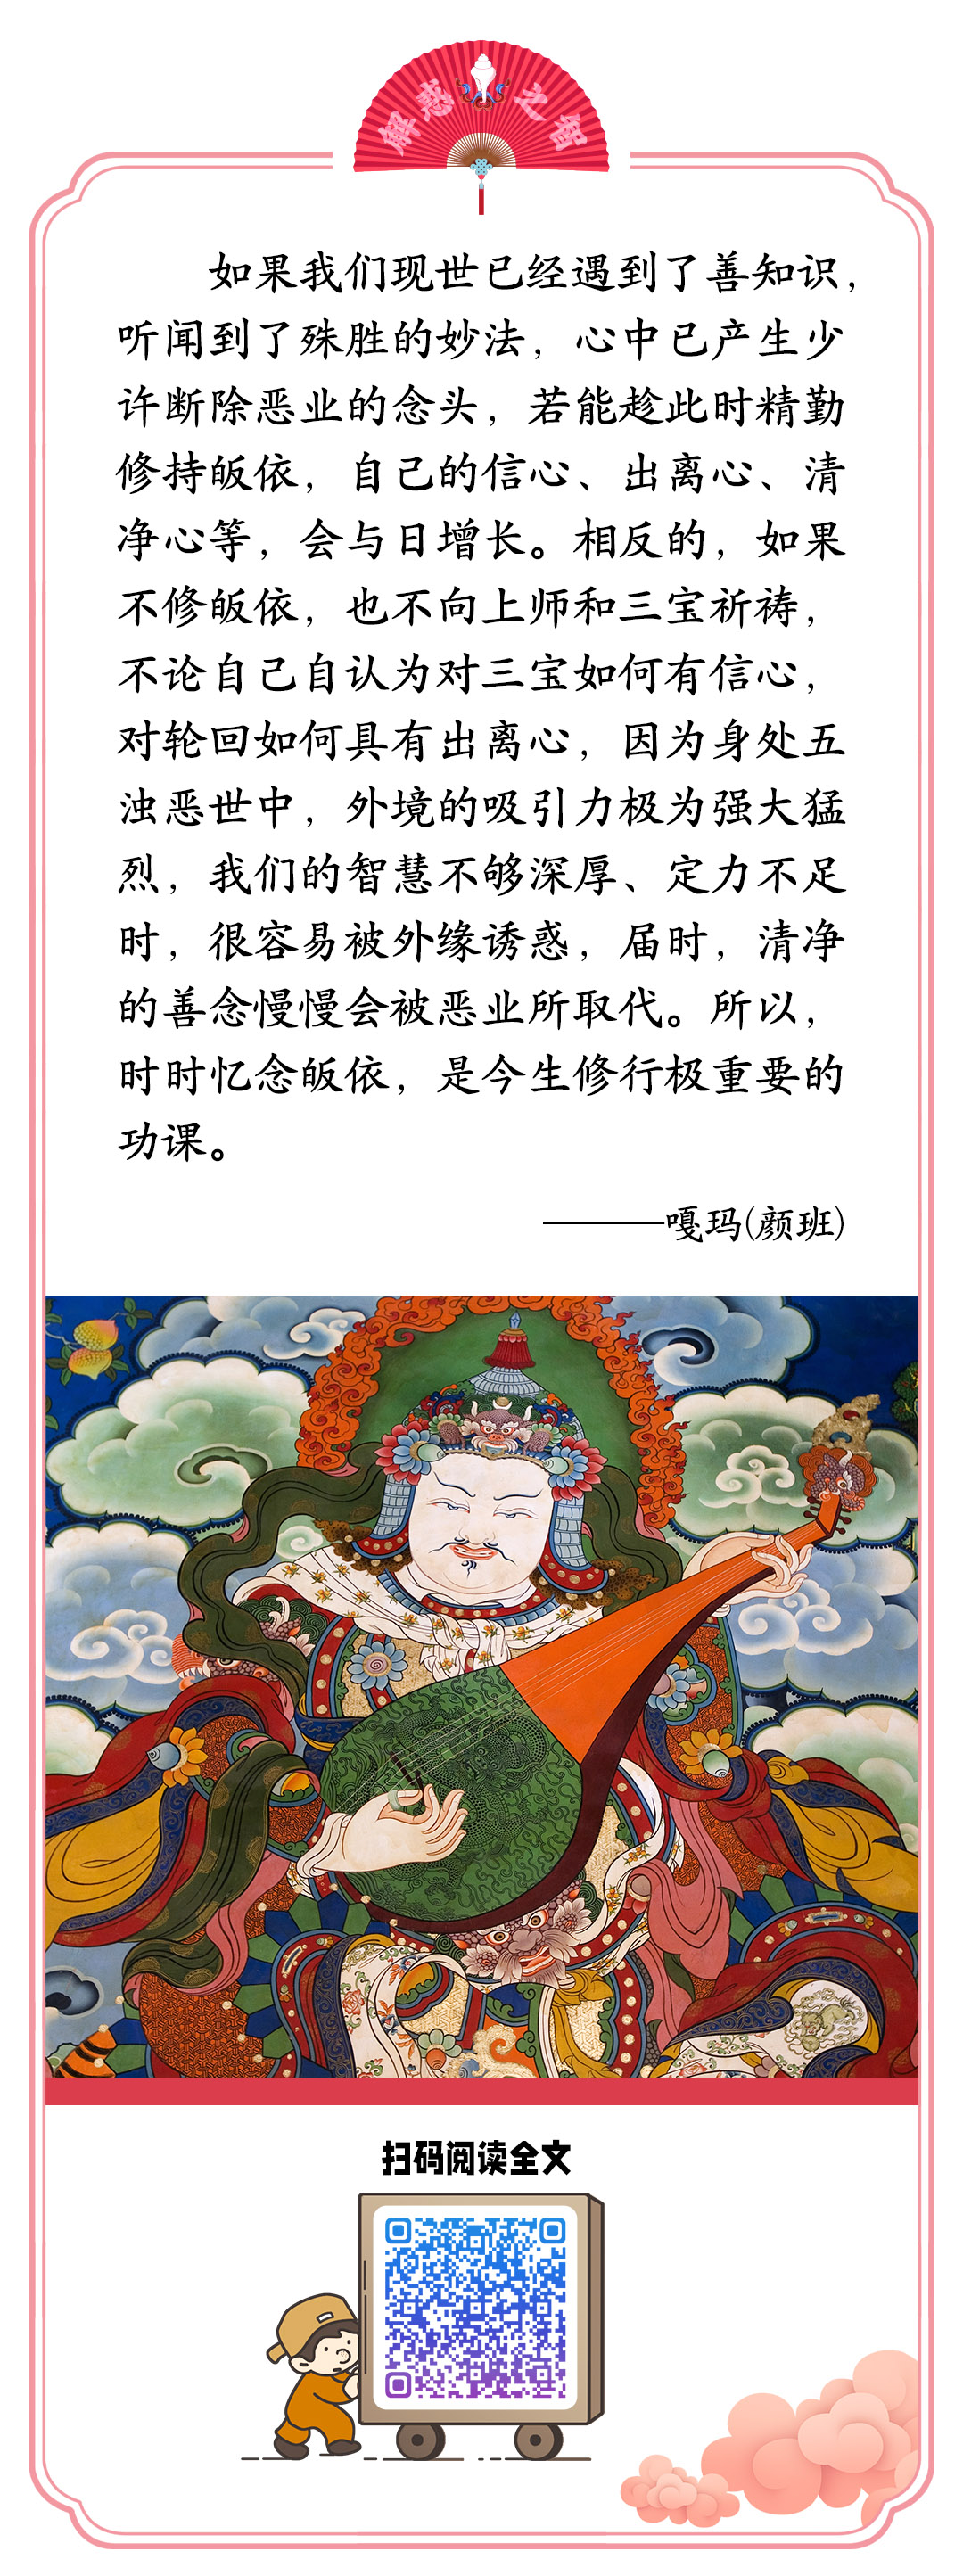 解惑之智
如果我们现世已经遇到了善知识，
听闻到了殊胜的妙法，心中已产生少
许断除恶业的念头，若能趁此时精勤
修持皈依，自己的信心、出离心、清
净心等，会与日增长。相反的，如果
不修皈依，也不向上师和三宝祈祷，
不论自己自认为对三宝如何有信心，
对轮回如何具有出离心，因为身处五
浊恶世中，外境的吸引力极为强大猛
烈，我们的智慧不够深厚、定力不足
时，很容易被外缘诱惑，届时，清净
的善念慢慢会被恶业所取代。所以，
时时忆念皈依，是今生修行极重要的
功课。
———嘎玛(颜班)
扫码阅读全文